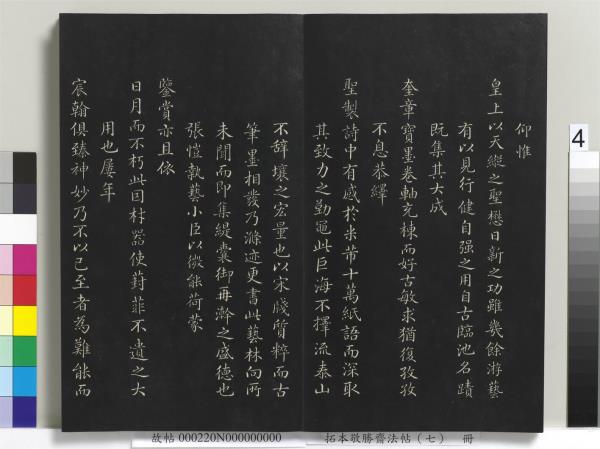 仰惟
皇上以天縱之聖懋日新之功雖幾餘游藝
有以見行健自强之用自古臨池名蹟
既集其大成
奎章寶墨卷軸充棟而好古敏求猶復孜孜
不息恭繹
聖製詩中有感於米芾十萬紙語而深取
其致力之勤蓋此巨海不擇流泰山
不辭壤之宏量也以宋牋質粹而古
筆墨相發乃滌迹更書此藝林向所
未聞而即集緹囊御再澣之盛德也
張愷執藝小臣以微能荷蒙
鑒賞亦且依
日月而不朽此因材器使葑菲不遺之大
用也屢年
宸翰俱臻神妙乃不以已至者為難能而
4
故帖 000220N000000000
拓本敬勝齋法帖（七） 冊